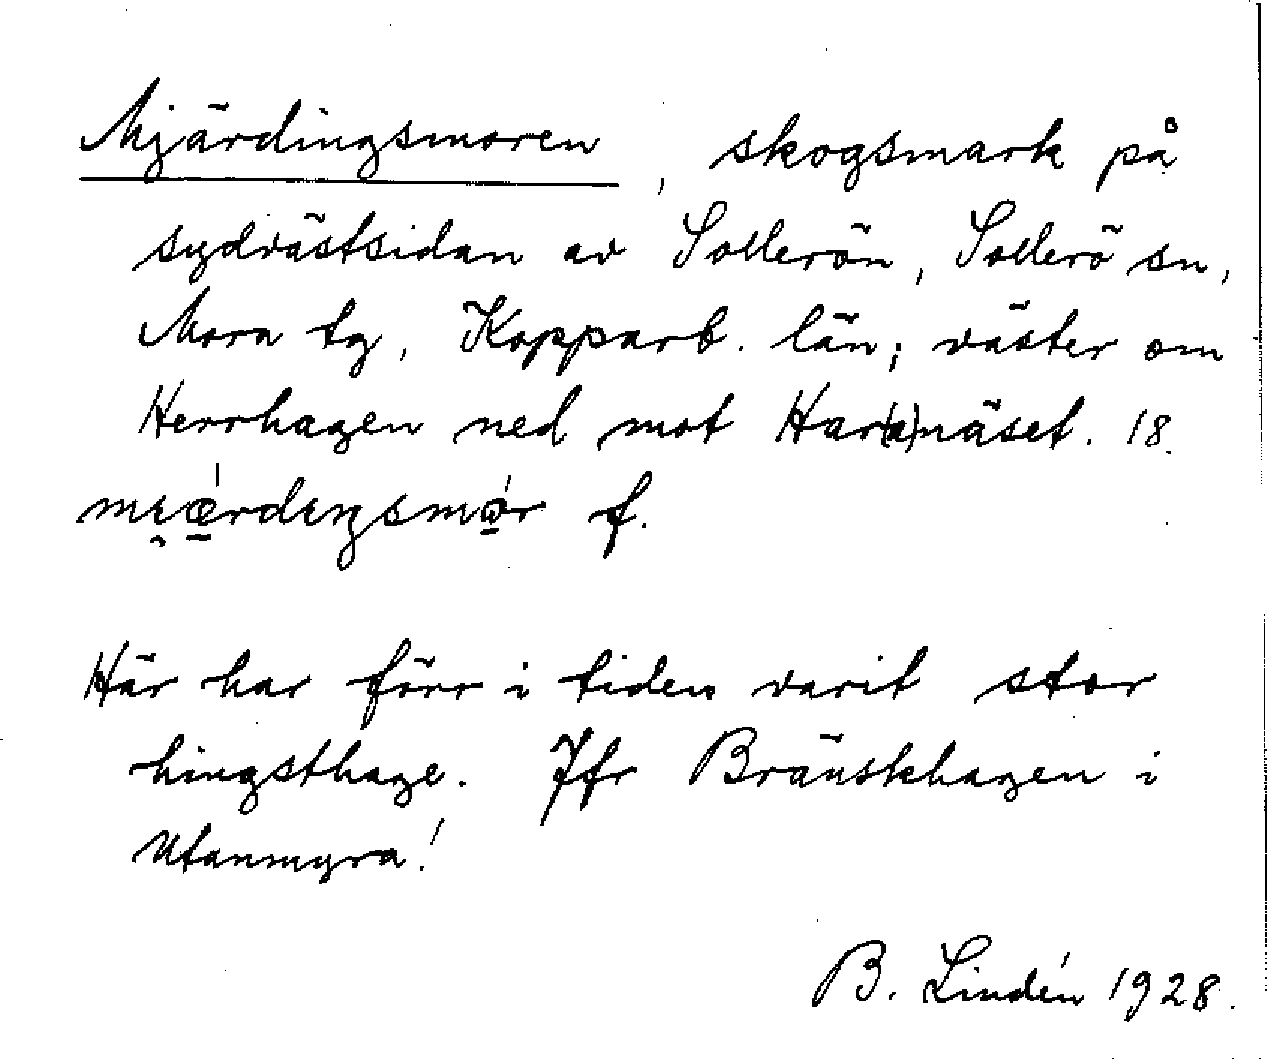 Mjärdingsmoren, skogsmark på
sydvästsidan av Sollerön, Sollerö sn,
Mora tg, Kopparb. län; väster om
Herrhagen ned mot Har(a)näset. 18.
mi̯ǽ̠rdıŋsmǫ́r f.
Här har förr i tiden varit stor
hingsthage. Jfr Bränskhagen i
Utanmyra!
B. Lindén 1928.